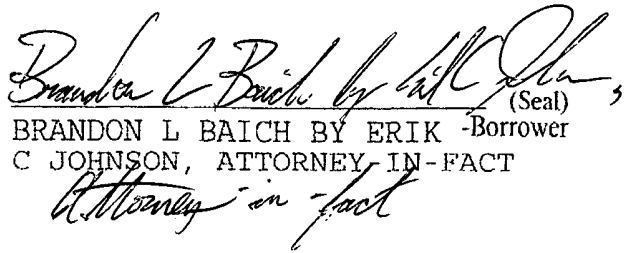 Brandon L Baich by Erik C Johnson,
(Seal)
BRANDON L BAICH BY ERIK -Borrower
C JOHNSON, ATTORNEY-IN-FACT
Attorney-in-fact